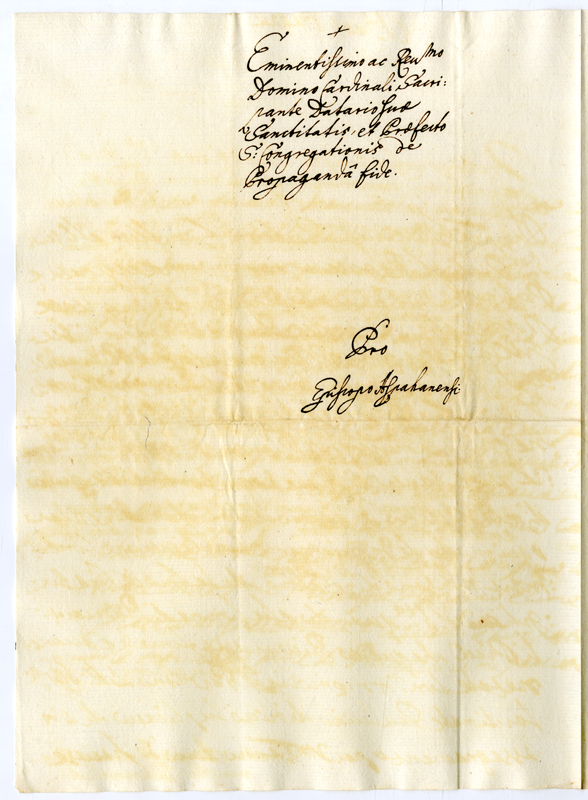 +
Eminentissimo ac Reumo
Domino Cardinali Sacri:
pante Datario suæ
Sanctitatis, et Præfecto
S: Congregationis de
Propagandâ fide.
Pro
Episcopo Aspahanensi